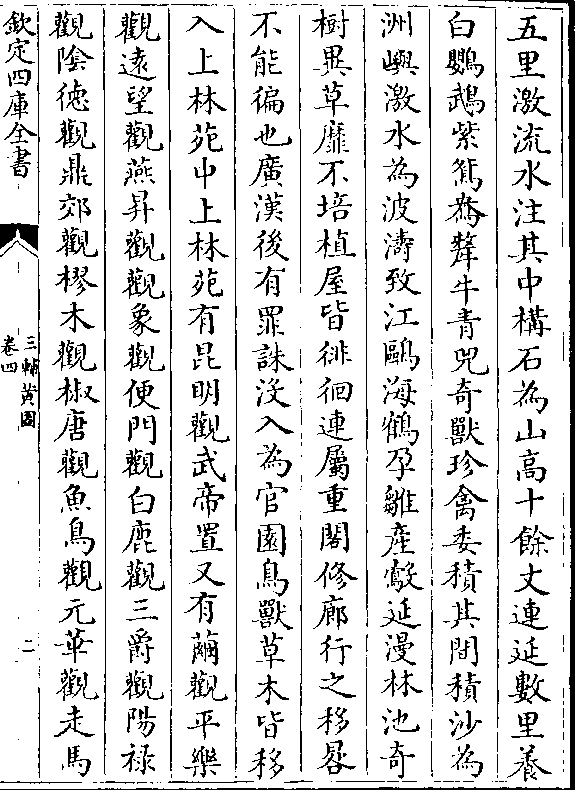 五里激流水注其中構石為山髙十餘丈連延數里養
白鸚鵡紫鴛鴦犛牛青兕奇獸珍禽委積其間積沙為
洲嶼激水為波濤致江鷗海鶴孕雛産鷇延漫林池奇
樹異草靡不培植屋皆徘徊連屬重閣修廊行之移晷
不能徧也廣漢後有罪誅没入為官園鳥獸草木皆移
入上林苑中上林苑有昆明觀武帝置又有繭觀平樂
觀逺望觀燕昇觀觀象觀便門觀白鹿觀三爵觀陽禄
觀隂德觀鼎郊觀樛木觀椒唐觀魚鳥觀元華觀走馬
欽定四庫全書
三輔黄圖
卷四
二